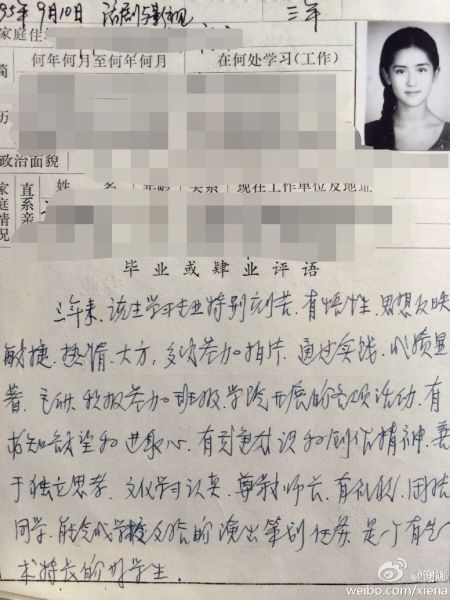 95年9月10日 话剧与影视 三年
家庭住
何年何月至何年何月 在何处学习(工作)
简
历
政治面貌
家庭情况 直系亲 姓 名 年龄 关系 现在工作单位及地址
毕业或肄业评语
三年来,该生学习专业特别刻苦、有悟性、思想反映
敏捷、热情、大方,多次参加拍片,通过实践,成绩显
著、主动、积极参加班级、学院开展的各项活动,有
求知欲望和进取心,有刻意意识和创作精神,善
于独立思考、文化学习认真、尊敬师长、有礼貌,团结
同学,能完成学校交给的演出策划任务,是一个有艺
术特长的好学生.
@谢娜
weibo.com/xiena